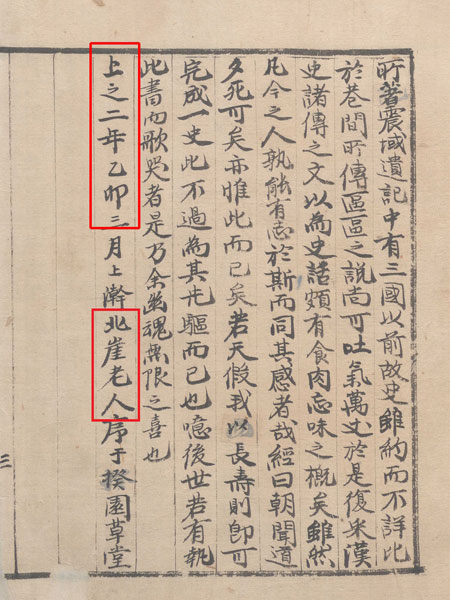 所著震域遺記中有三國以前故史雖約而不詳比
於巷間所傳區區之說尚可吐氣萬丈於是復采漢
史諸傳之文以為史話頗有食肉忘味之概矣雖然
凡今之人孰能有志於斯而同其感者哉經曰朝聞道
夕死可矣亦惟此而已矣若天假我以長壽則即可
完成一史此不過為其先驅而已也噫後世若有執
此書而歌哭者是乃余幽魂無限之喜也
上之二年乙卯三月上澣北崖老人序于揆園草堂
三